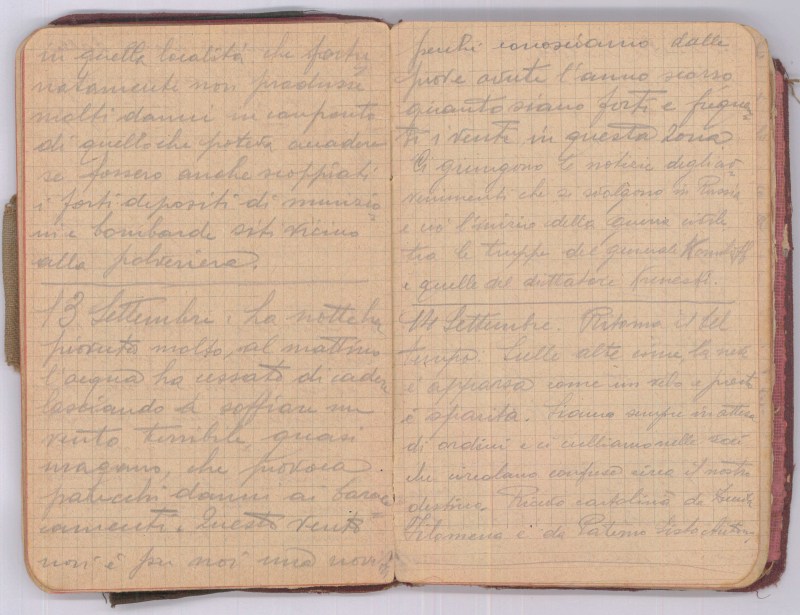 in quella località che fortu
natamente non produsse
molti danni in confronto
di quello che poteva accadere
se fossero anche scoppiati
i forti depositi di munizio=
ni e bombarde siti vicino
alla polveriera.
13 Settembre. La notte ha
piovuto molto, al mattino
l'acqua ha cessato di cadere
lasciando soffiare un
vento terribile, quasi
uragano, che provoca
parecchi danni ai barac=
camenti. Questo vento
non è per noi una novità
perchè conosciamo dalle
prove avute l'anno scorso
quanto siano forti e freque=
ti i venti in questa zona.
Ci giungono le notizie degli av=
venimenti che si svolgono in Russia
e cioè l'inizio della guerra civile
tra le truppe del generale Korniloff
e quelle del dittatore Kerenski.
14 Settembre. Ritorna il bel
tempo. Sulle alte cime, la neve
è apparsa come un velo e presto
è sparita. Siamo sempre in attesa
di ordini e ci culliamo nelle voci
che circolano confuse circa il nostro
destino. Ricevo cartolina da
Filomena e da Paterno Sisto